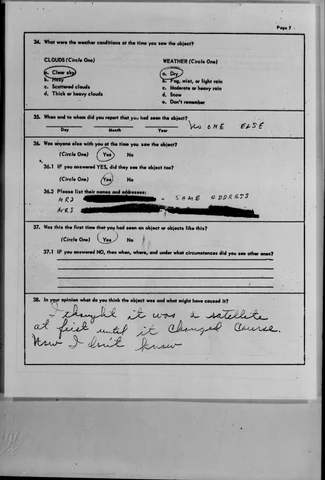 Page 7
34. What were the weather conditions at the time you saw the object?
CLOUDS (Circle One) WEATHER (Circle One)
a. Clear sky a. Dry
b. Hazy b. Fog, mist, or light rain
c. Scattered clouds c. Moderate or heavy rain
d. Thick or heavy clouds d. Snow
e. Don't remember
35. When and to whom did you report that you had seen the object?
NO ONE ELSE
Day Month Year
36. Was anyone else with you at the time you saw the object?
(Circle One) Yes No
36.1 IF you answered YES, did they see the object too?
(Circle One) Yes No
36.2 Please list their names and addresses:
MRS SAME ADDRESS
MRS
37. Was this the first time that you had seen an object or objects like this?
(Circle One) Yes No
37.1 IF you answered NO, then when, where, and under what circumstances did you see other ones?
38. In your opinion what do you think the object was and what might have caused it?
I thought it was a satellite
at first until it changed course.
Now I don't know